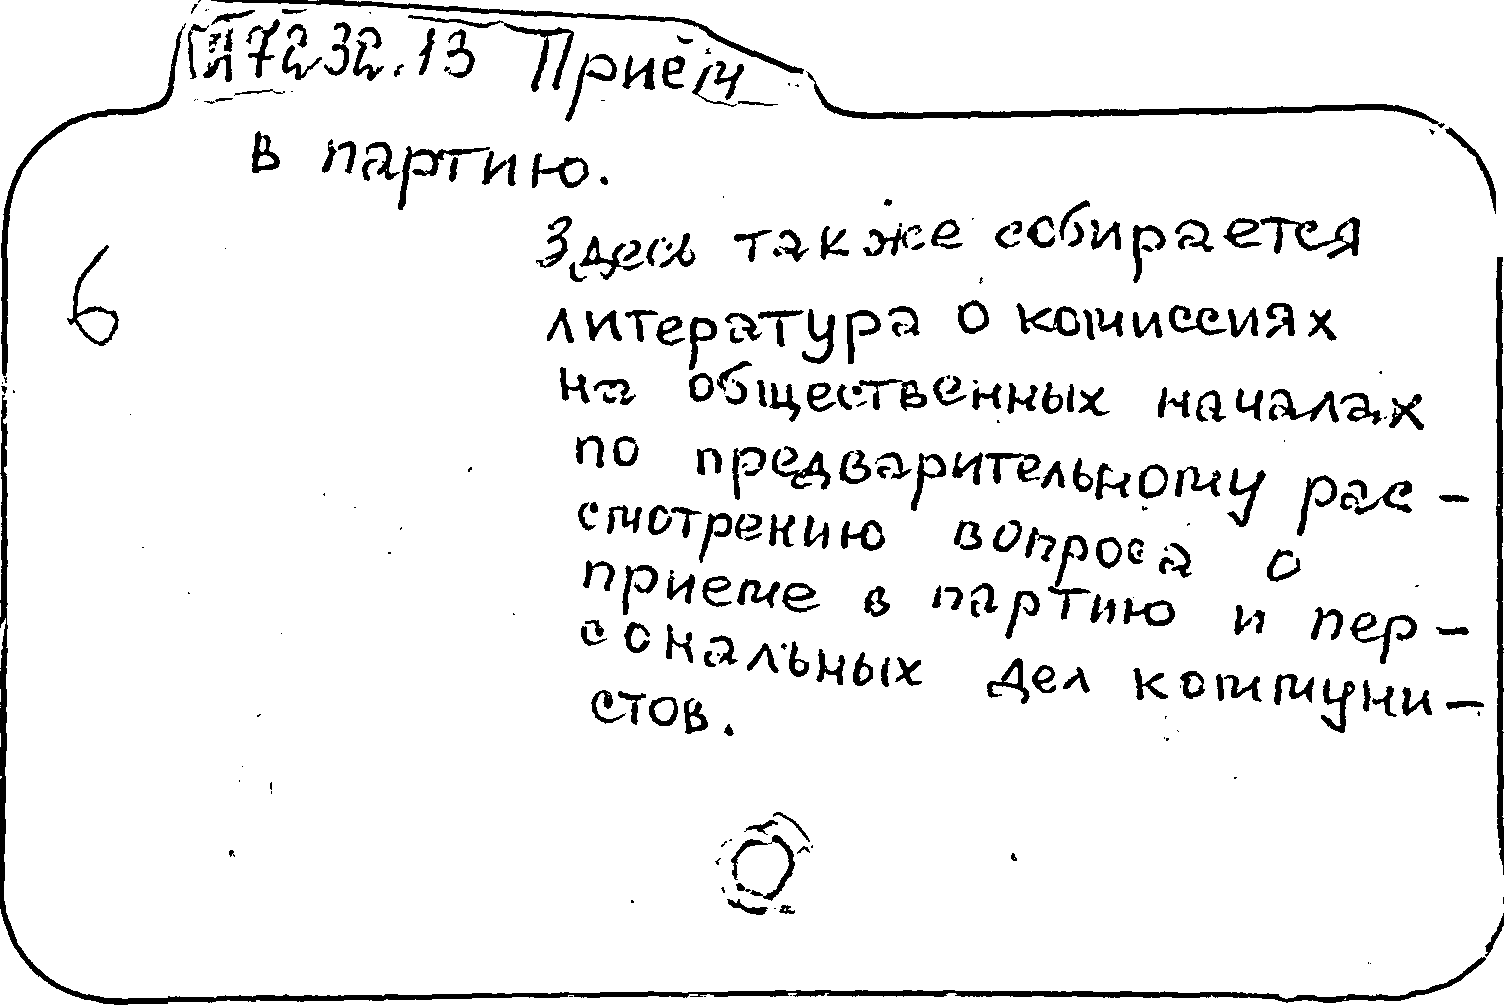 Я7232.13 Приём
в партию.
Здесь также собирается
6
литература о комиссиях
на общественных началах
по предварительному рас-
смотрению вопроса о
приеме в партию и пер-
сональных дел коммуни-
стов.